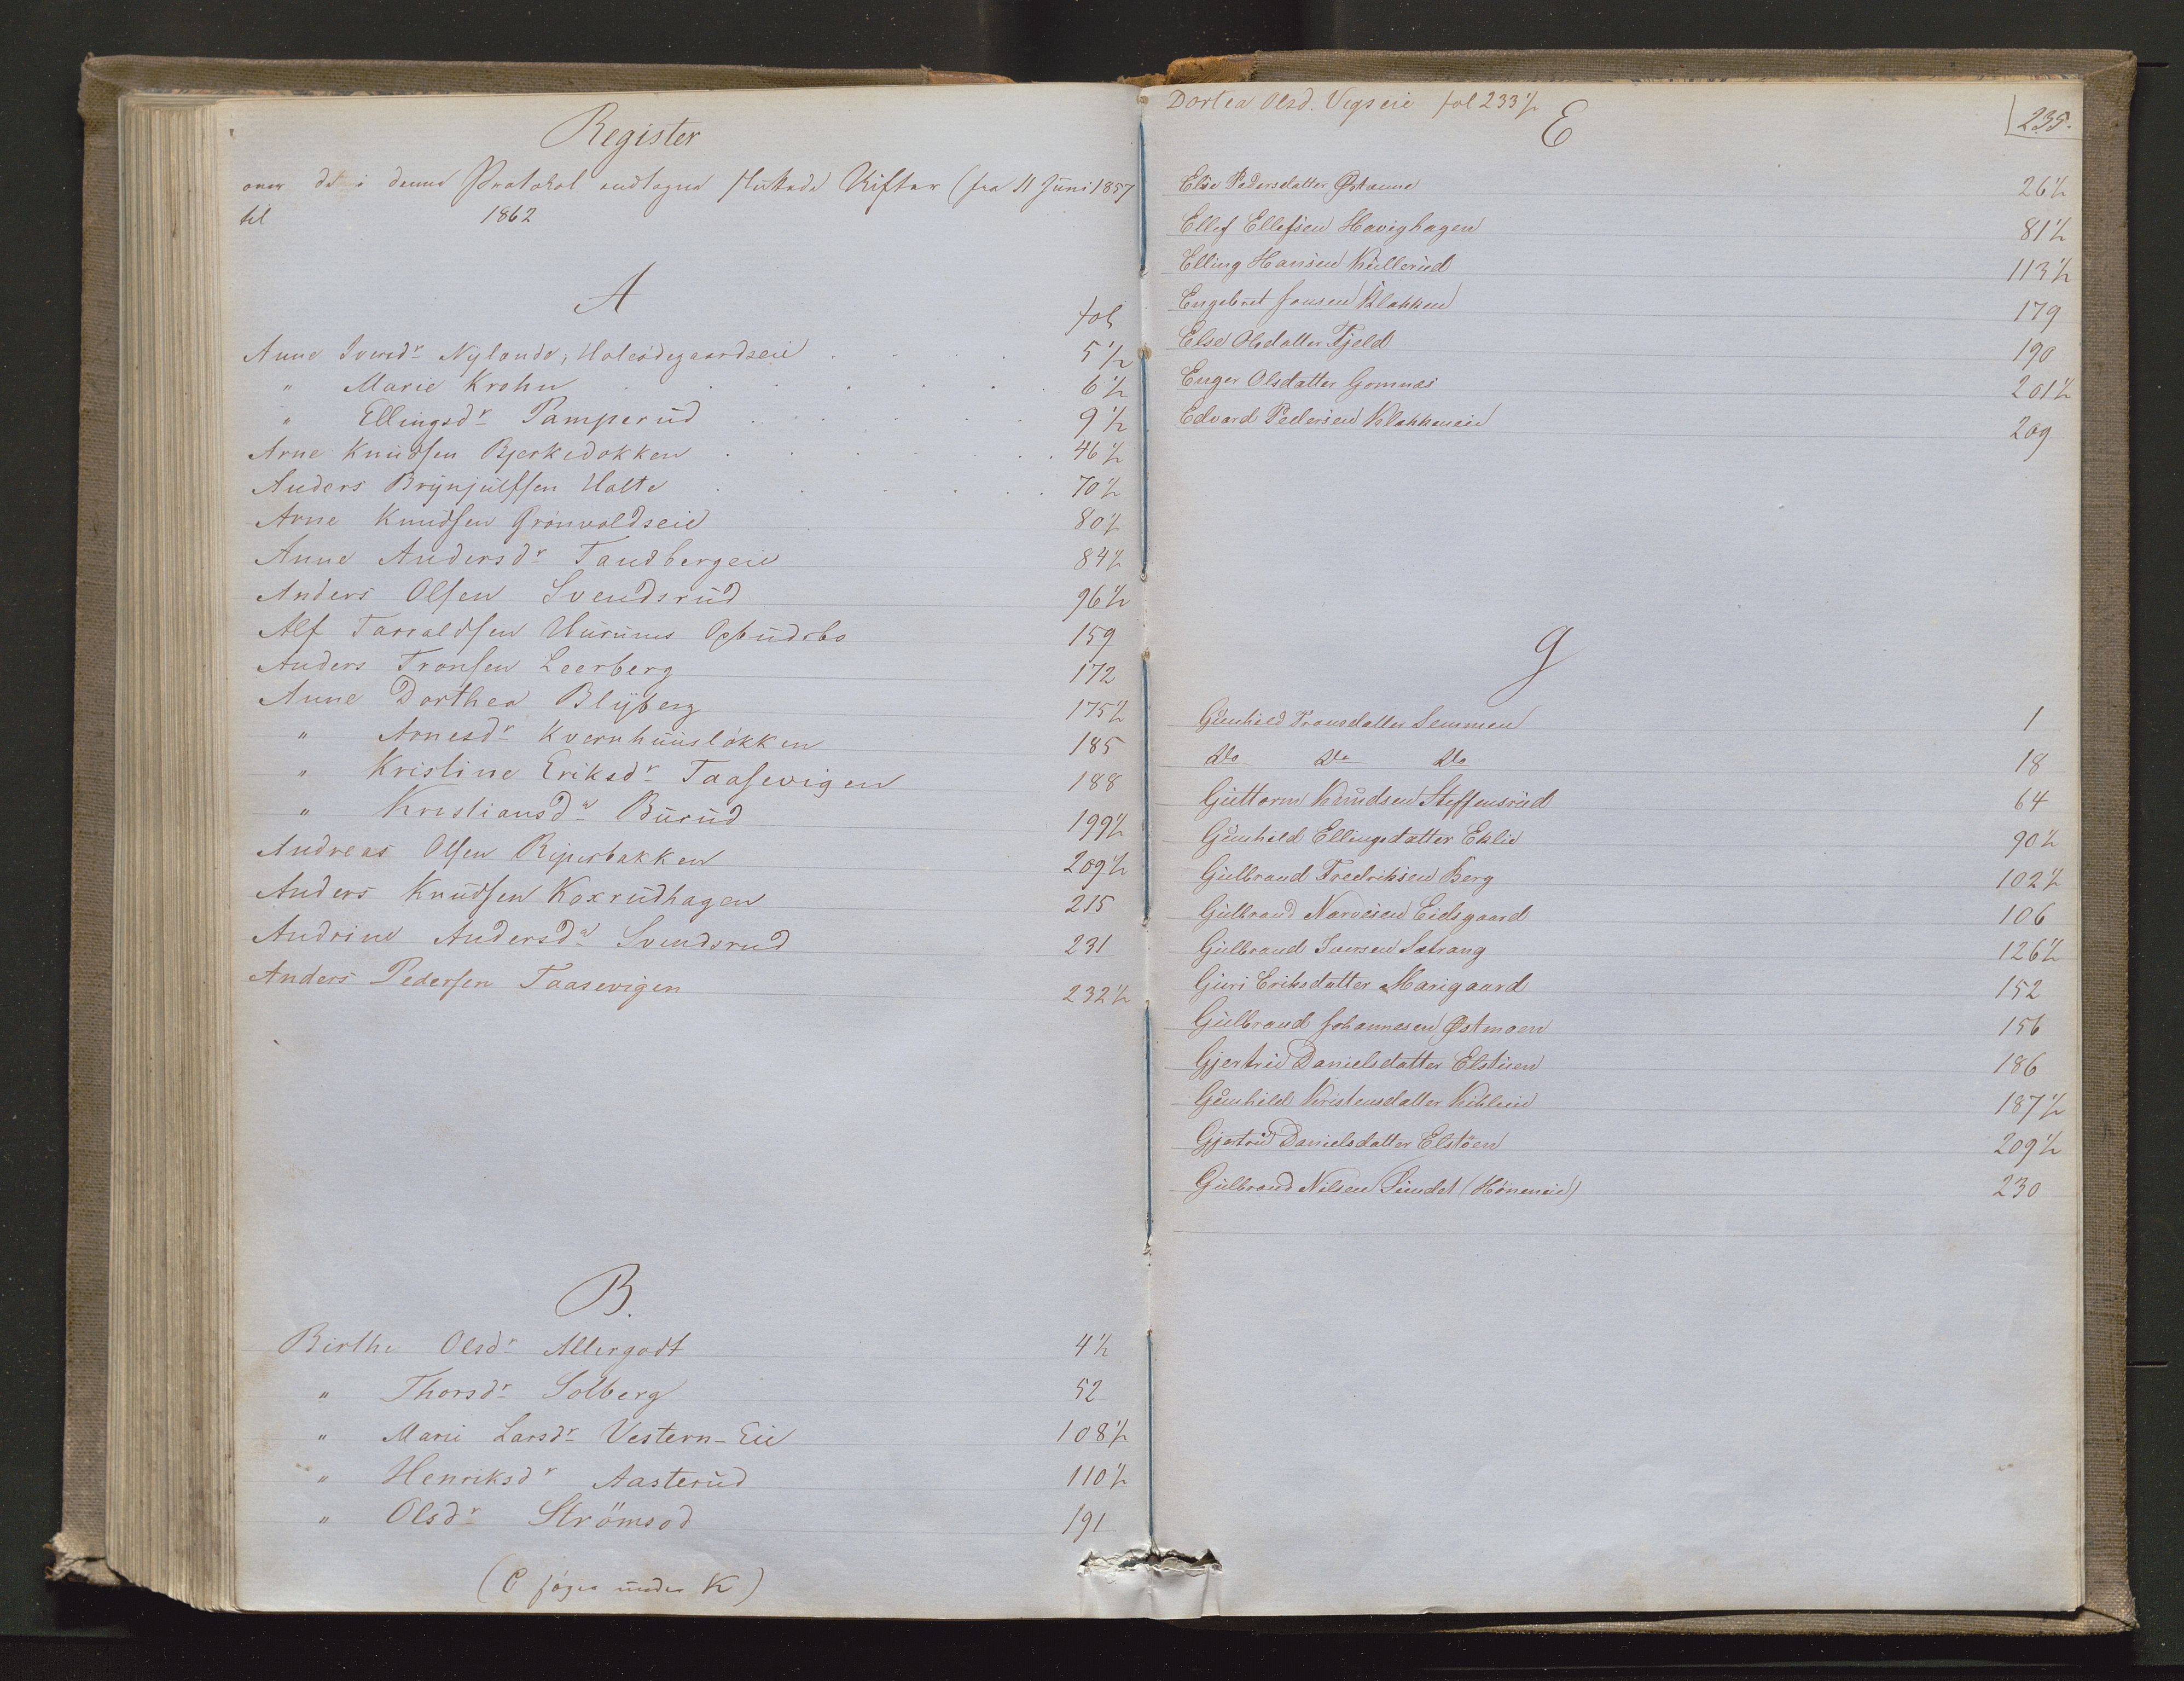 Register
over de i denne Protokol indtagne sluttede Skifter (fra 11 Juni 1857
til 1862
A
fol
Anne Iversdr Nylende, Holeødegaardseie . . . . 5 1/2
" Marie Krohn . . . . . . 6 1/2
" Ellingsdr Pamperud . . . . 9 1/2
Arne Knudsen Bjerkedokken . . . . . 46 1/2
Anders Brynjulfsen Holte . . . . . 70 1/2
Arne Knudsen Grönvoldseie 80 1/2
Anne Andersdr Tandbergeie 84 1/2
Anders Olsen Svendsrud 96 1/2
Alf Taraldsen 159
Anders Tronsen Leerberg 172
Anne Dorthea Blyberg 175 1/2
" Arnesdr Kvernhuusløkken 185
" Kristine Eriksdr Taasevigen 188
" Kristiansdr Burud 199 1/2
Andreas Olsen Riperbakken 209 1/2
Anders Knudsen Koxrudhagen 215
Andrine Andersdr Svendsrud 231
Anders Pedersen Taasevigen 232 1/2
B.
Birthe Olsdr Allergodt 4 1/2
" Thorsdr Solberg 52
" Marie Larsdr Vestern-Eie 108 1/2
" Henriksdr Aasterud 110 1/2
" Olsdr Strömsod 191
(C søges under K)
Dortea Olsd. Vegseie fol 233 1/2
235.
E
Else Pedersdatter 26 1/2
Ellef Ellefsen Havighagen 81 1/2
Elling Hansen Kullerud 113 1/2
Engebret Jonsen Klækken 179
Else Olsdatter Fjeld 190
Enger Olsdatter Gomnæs 201 1/2
Edvard Pedersen Klækkeneie 209
G
Gunhild Tronsdatter Semmen 1
Do Do Do 18
Guttorm Knudsen Steffensrud 64
Gunhild Ellingsdatter Eklie 90 1/2
Gulbrand Fredriksen Berg 102 1/2
Gulbrand Narvesen Eidsgaard 106
Gulbrand Iversen Sætrang 126 1/2
Guri Eriksdatter Marigaard 152
Gulbrand Johannesen Østmoen 156
Gjertrud Danielsdatter Elstöen 186
Gunhild Kristensdatter 187 1/2
Gjertrud Danielsdatter Elstöen 209 1/2
Gulbrand Nilsen Sundet (Höneneie) 230